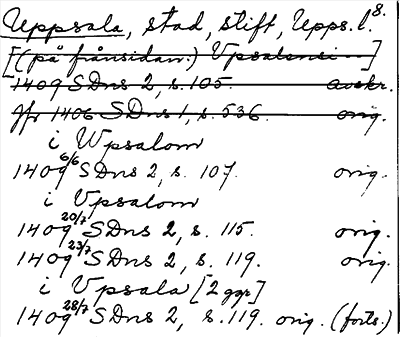 Uppsala, stad, stift, Upps. l. 8.
[(på frånsidan:) Vpsalensi]
1409 SDns 2, s. 105. avskr.
Jfr 1406 SDns 1, s. 536. orig.
i Wpsalom
1409 6/6 SDns 2, s. 107. orig.
i Vpsalom
1409 20/7 SDns 2, s. 115. orig.
1409 23/7 SDns 2, s. 119. orig.
i Vpsala [2 ggr]
1409 28/7 SDns 2, s. 119. orig. (forts.)